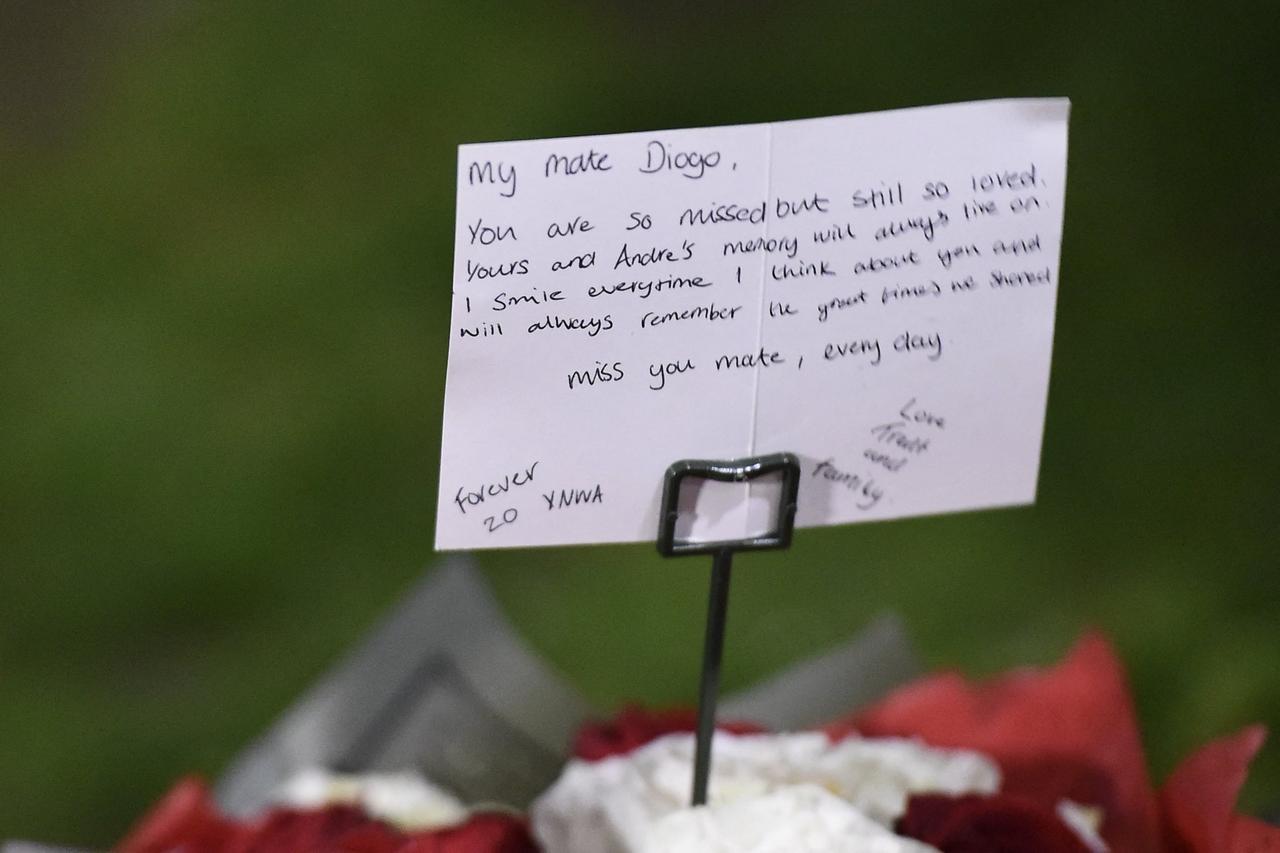 My mate Diogo,
You are so missed but still so loved.
Yours and Andre's memory will always live on.
I smile everytime I think about you and
will always remember the great times we shared
miss you mate, every day
Love
Trent
and
family.
Forever
20 YNWA